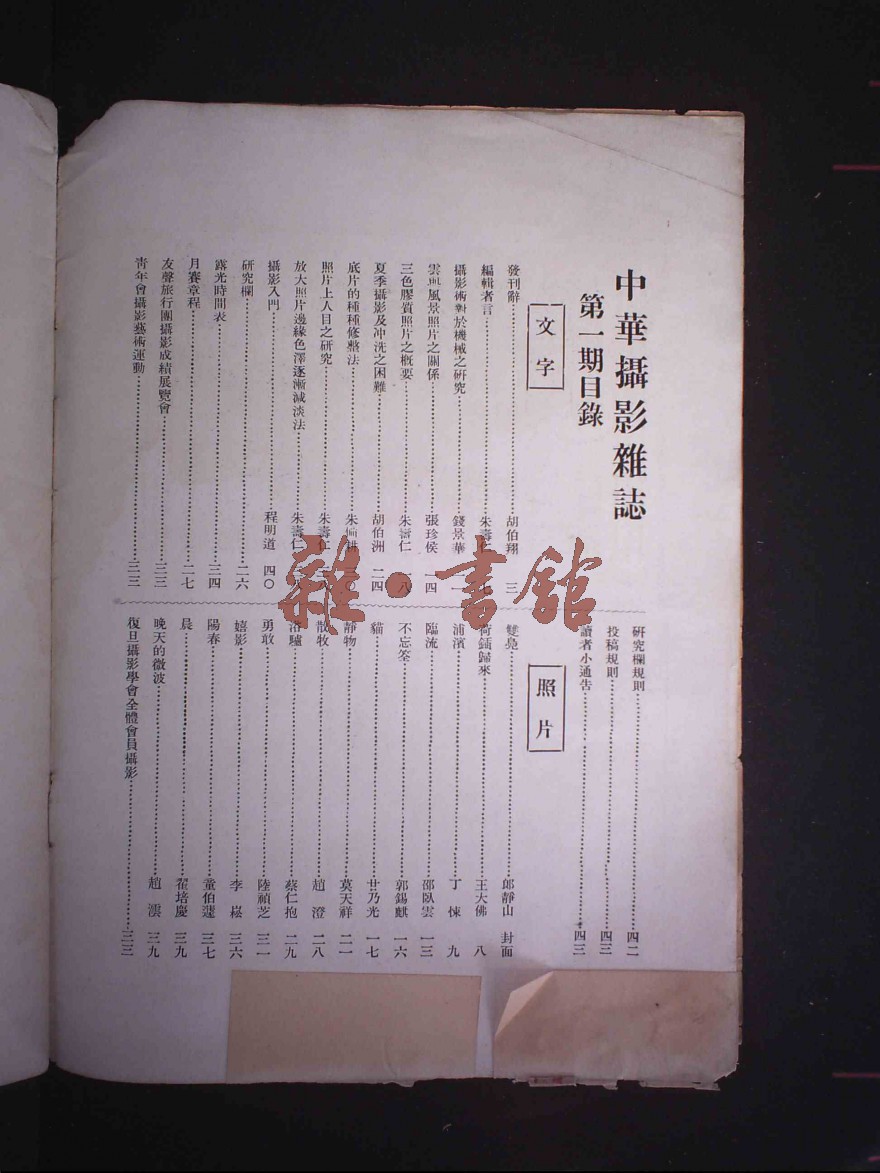 中華攝影雜誌
第一期目錄
文字
發刊辭 胡伯翔 三
編輯者言 朱壽仁
攝影術對於機械之研究 錢景華
雲與風景照片之關係 張珍侯 一四
三色膠質照片之概要 朱壽仁 八
夏季攝影及冲洗之困難 胡伯洲 二四
底片的種種修整法
照片上人目之研究 朱壽仁
放大照片邊緣色澤逐漸減淡法 朱壽仁
攝影入門 程明道 四〇
研究欄 二六
露光時間表 三四
月賽章程 二七
友聲旅行團攝影成績展覽會 三三
青年會攝影藝術運動 三三
研究欄規則 四二
投稿規則 四三
讀者小通告 四三
照片
雙鳧 郎靜山 封面
荷鍤歸來 王大佛 八
浦濱 丁悚 九
臨流 邵臥雲 一三
不忘筌 郭錫麒 一六
貓 甘乃光 一七
靜物 莫天祥 二一
散牧 趙澄 二八
洛驢 蔡仁抱 二九
勇敢 陸禎芝 三一
嬉影 李崧 三六
陽春 童伯 三七
晨 翟培慶 三九
晚天的微波 趙澐 三九
復旦攝影學會全體會員攝影 三三
雜·書館